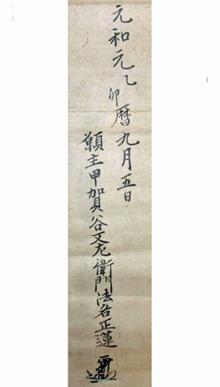 元和元乙卯暦九月五日
願主甲賀谷又左衛門法名正蓮